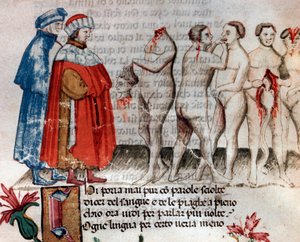 CHi poria mai pur cō parole sciolte
dicer del sangue e de le piaghe a pieno
chio ora vidi per narrar piu uolte
Ogne lingua per certo veria meno